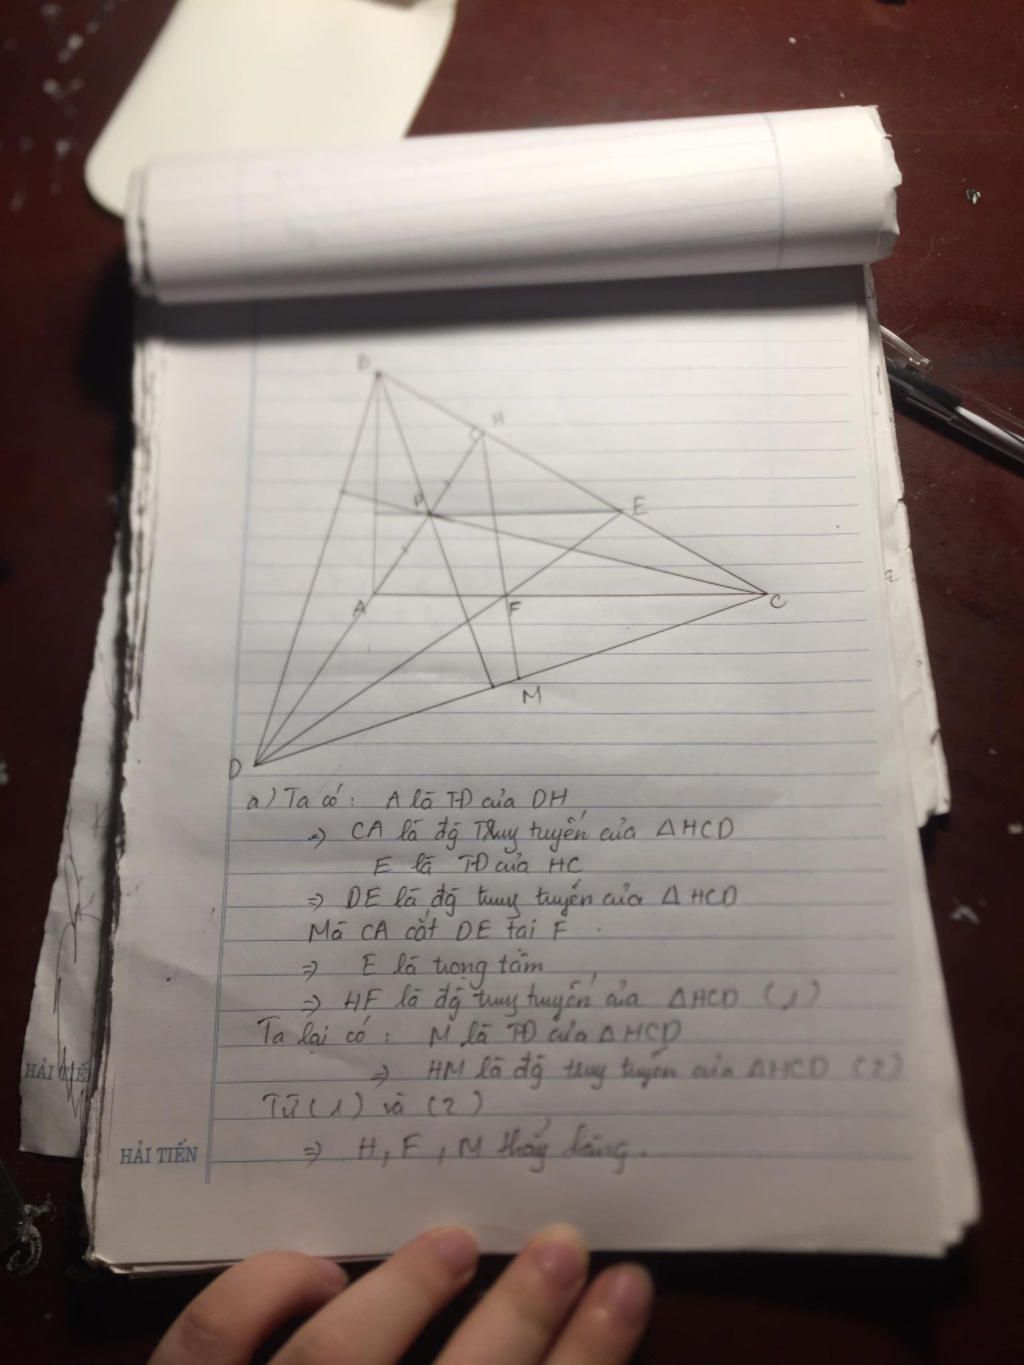 B
H
P
E
A
F
C
M
D
a) Ta có: A là TĐ của DH
=> CA là đg Truy tuyến của △HCD
E là TĐ của HC
=> DE là đg truy tuyến của △HCD
Mà CA cắt DE tại F
=> E là trọng tâm
=> HF là đg truy tuyến của △HCD (1)
Ta lại có: M là TĐ của △HCD
=> HM là đg truy tuyến của △HCD (2)
Từ (1) và (2)
=> H, F, M thẳng hàng.
HẢI TIẾN
HẢI TIẾN